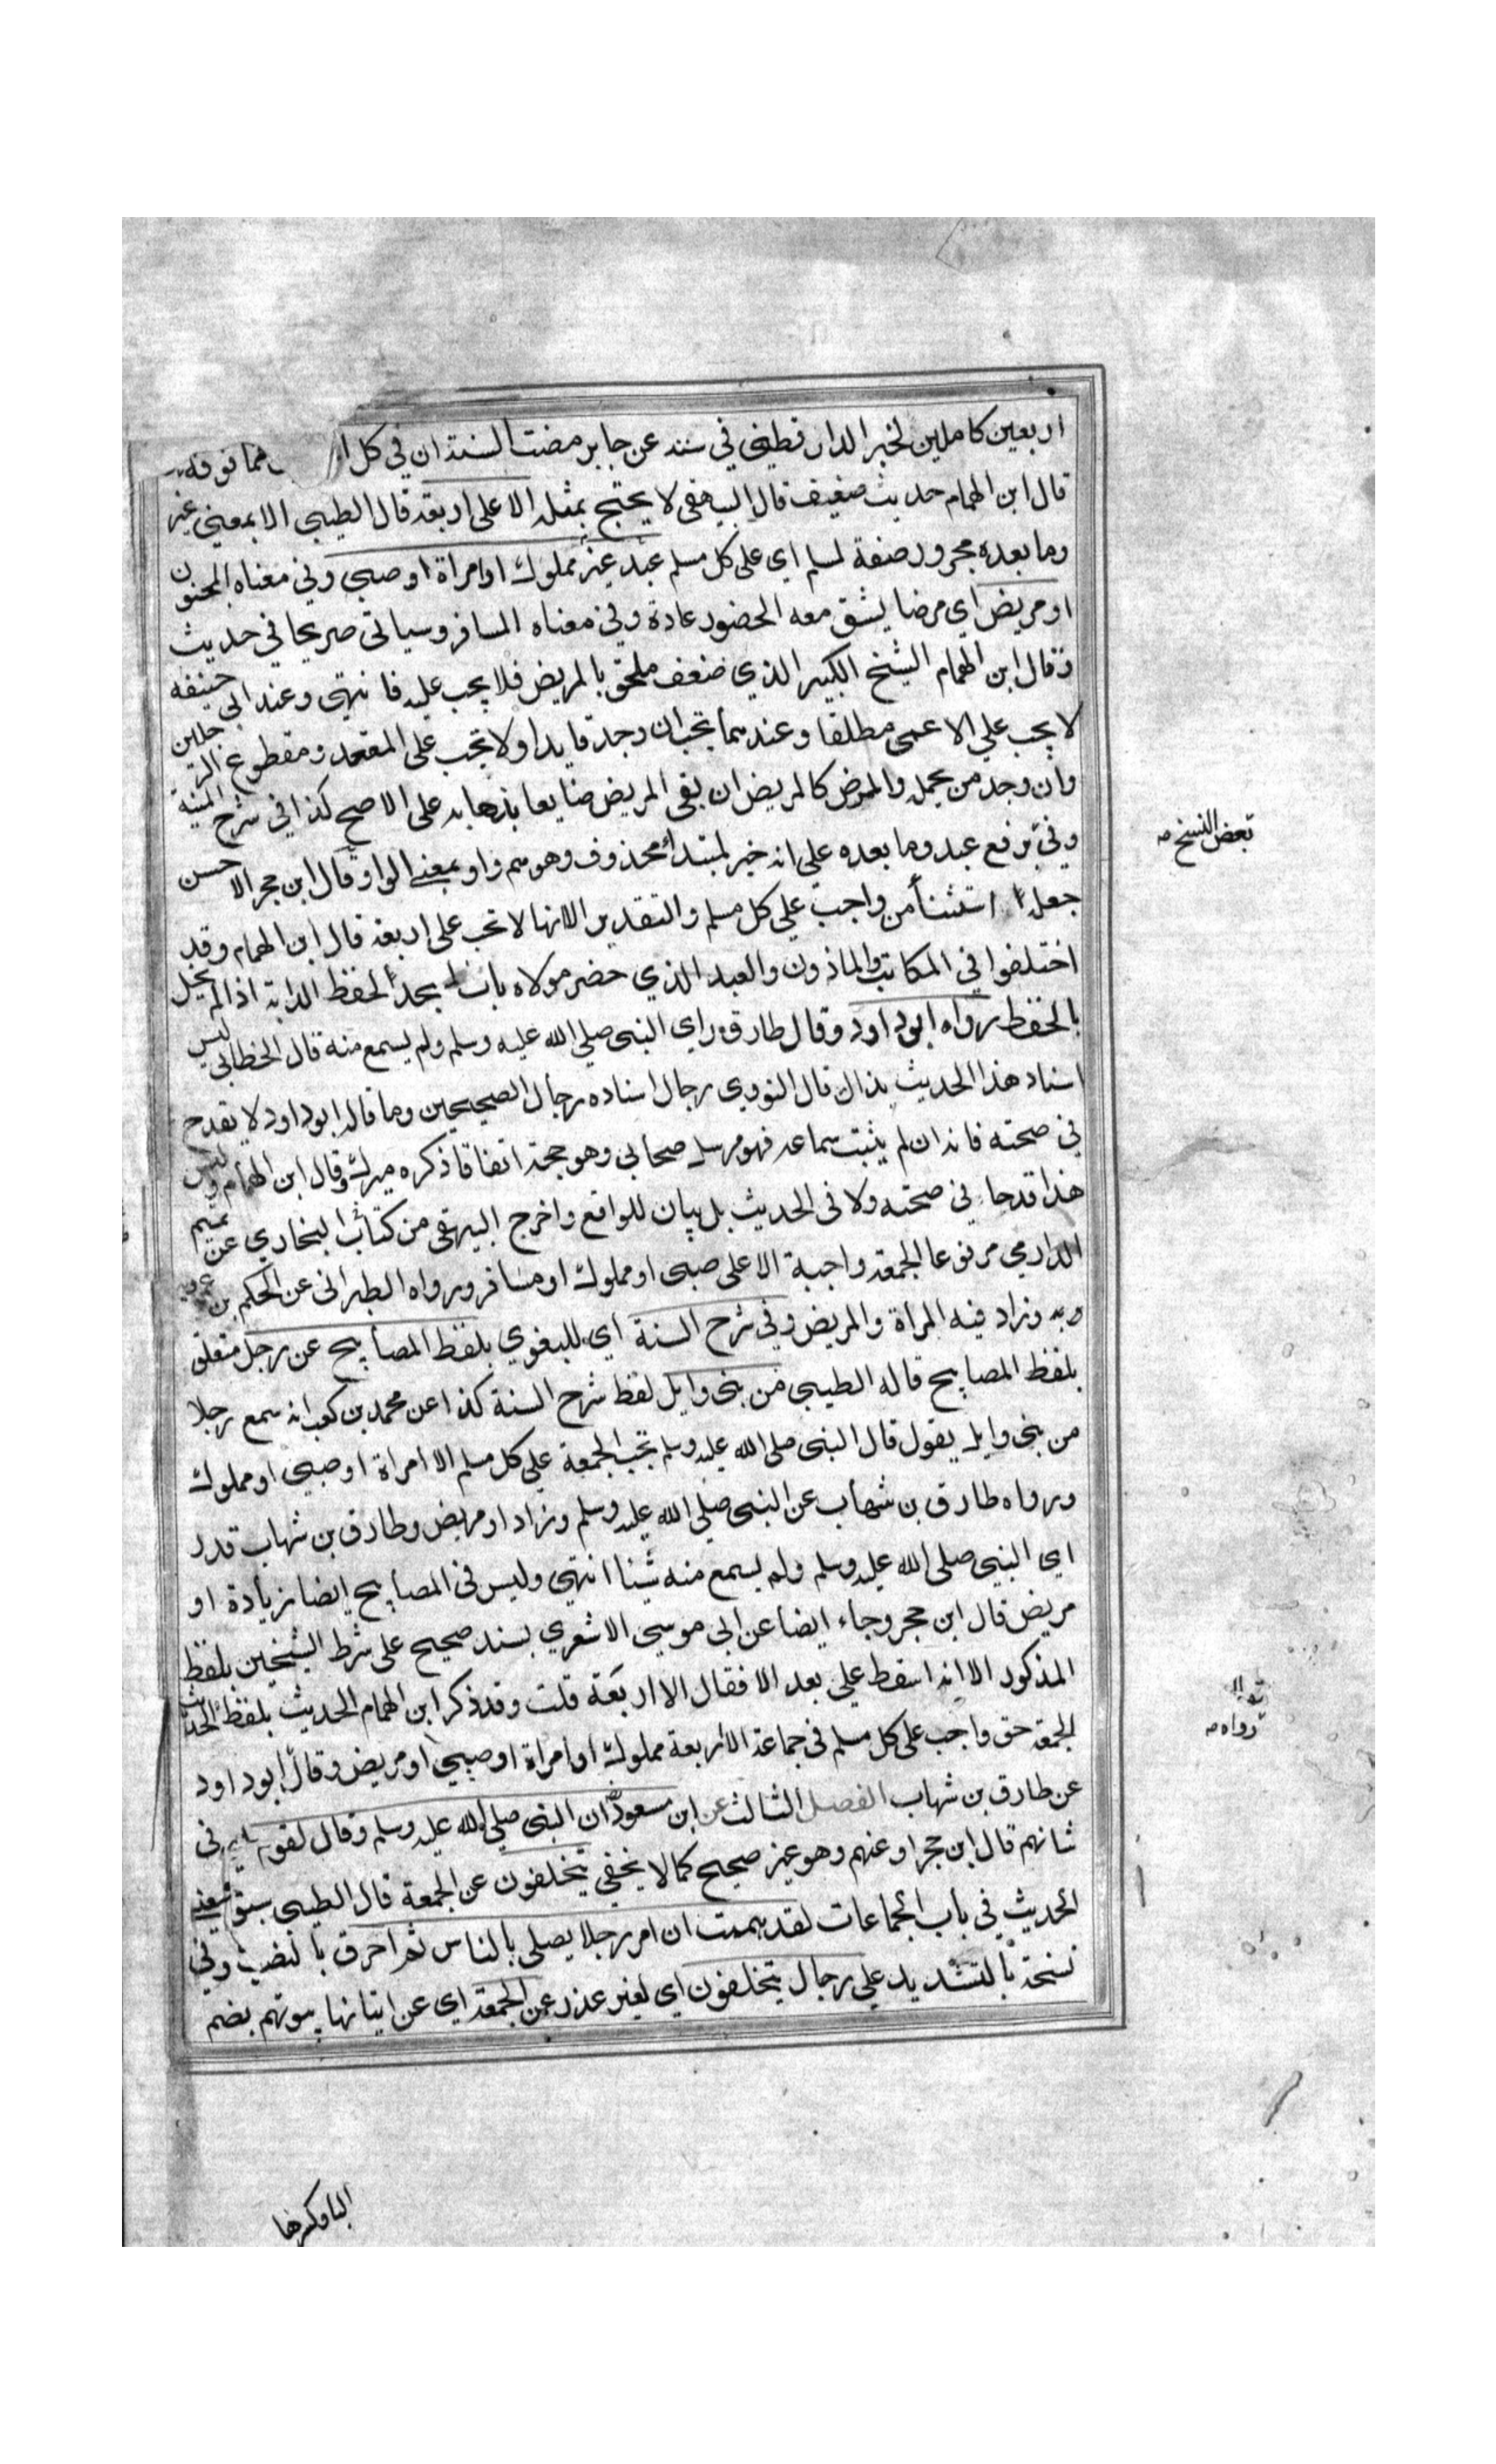 اربعين كاملين لخبر الدار قطيني في سننه عن جابر مضت السنة ان في كل فما فوقه
قال ابن الهمام حديث ضعيف قال البيهقي لا يحتج بمثله الا على اربعة قال الطيبي الا بمعني غير
وما بعده مجرور صفة لمسلم اي على كل مسلم عبد غير مملوك او امراة او صبي وفي معناه المجنون
او مريض اي مرضا يشق معه الحضور عادة وفي معناه المسافر وسياتي صريحا في حديث
وقال ابن الهمام الشيخ الكبير الذي ضعف ملحق بالمريض فلا يجب عليه انتهى وعند ابي حنيفة
لا يجب علي الاعمى مطلقا وعندهما تجب ان وجد قايدا ولا تجب على المقعد ومقطوع الرجلين
وان وجد من يحمله والممرض كالمريض ان بقي المريض ضايعا بذهابه على الاصح كذا في شرح المنية
وفي برفع عبد وما بعده علي انه خبر لمبتدأ محذوف وهو هم واو بمعني الواو وقال ابن حجر الاحسن
بعض النسخ
جعله استثنأ من واجب علي كل مسلم والتقدير الا انها لا تجب على اربعة قال ابن الهمام وقد
اختلفوا في المكاتب والماذون والعبد الذي حضر مولاه باب المسجد لحفظ الدابة اذا لم يخل
بالحفظ رواه ابو داود وقال طارق راي النبي صلي الله عليه وسلم ولم يسمع منه قال الخطابي ليس
اسناد هذا الحديث بذاك قال النووي رجال اسناده رجال الصحيحين وما قاله ابو داود لا يقدح
في صحته فانه ان لم يثبت سماعه فهو مرسل صحابي وهو حجة اتفاقا ذكره ميرك وقال ابن الهمام وليس
هذا قدحا في صحته ولا في الحديث بل بيان للواقع واخرج البيهقي من كتاب البخاري عن تميم
الدارمي مرفوعا الجمعة واجبة الا على صبي او مملوك او مسافر ورواه الطبراني عن الحكم بن عمرو
به وزاد فيه المراة والمريض وفي شرح السنة اي للبغوي بلفظ المصابيح عن رجل متعلق
بلفظ المصابيح قاله الطيبي من بني وايل لفظ شرح السنة كذا عن محمد بن كعب انه سمع رجلا
من بني وايل يقول قال النبي صلي الله عليه وسلم تجب الجمعة علي كل مسلم الا امراة او صبي او مملوك
ورواه طارق بن شهاب عن النبي صلي الله عليه وسلم وزاد او مريض وطارق بن شهاب قد ر
اي النبي صلي الله عليه وسلم ولم يسمع منه شيئا انتهي وليس في المصابيح ايضا زيادة او
مريض قال ابن حجر وجاء ايضا عن ابي موسي الاشعري بسند صحيح على شرط الشيخين بلفظ
المذكور الا انه اسقط علي بعد الا فقال الا اربعة قلت وقد ذكر ابن الهمام الحديث بلفظ الحديث
الجمعة حق واجب على كل مسلم في جماعة الا اربعة مملوك او امراة او صبي او مريض وقال ابو داود
رواه
عن طارق بن شهاب الفصل الثالث عن ابن مسعود ان النبي صلي الله عليه وسلم وقال لقوم في
شانهم قال ابن حجر او عنهم وهو غير صحيح كما لا يخفي يتخلفون عن الجمعة قال الطيبي سبق
الحديث في باب الجماعات لقد هممت ان امر رجلا يصلي بالناس ثم احرق بالنصب وفي
نسخة بالتشديد علي رجال يتخلفون اي لغير عذر عن الجمعة اي عن اتيانها بيوتهم بضم
البا وكسرها